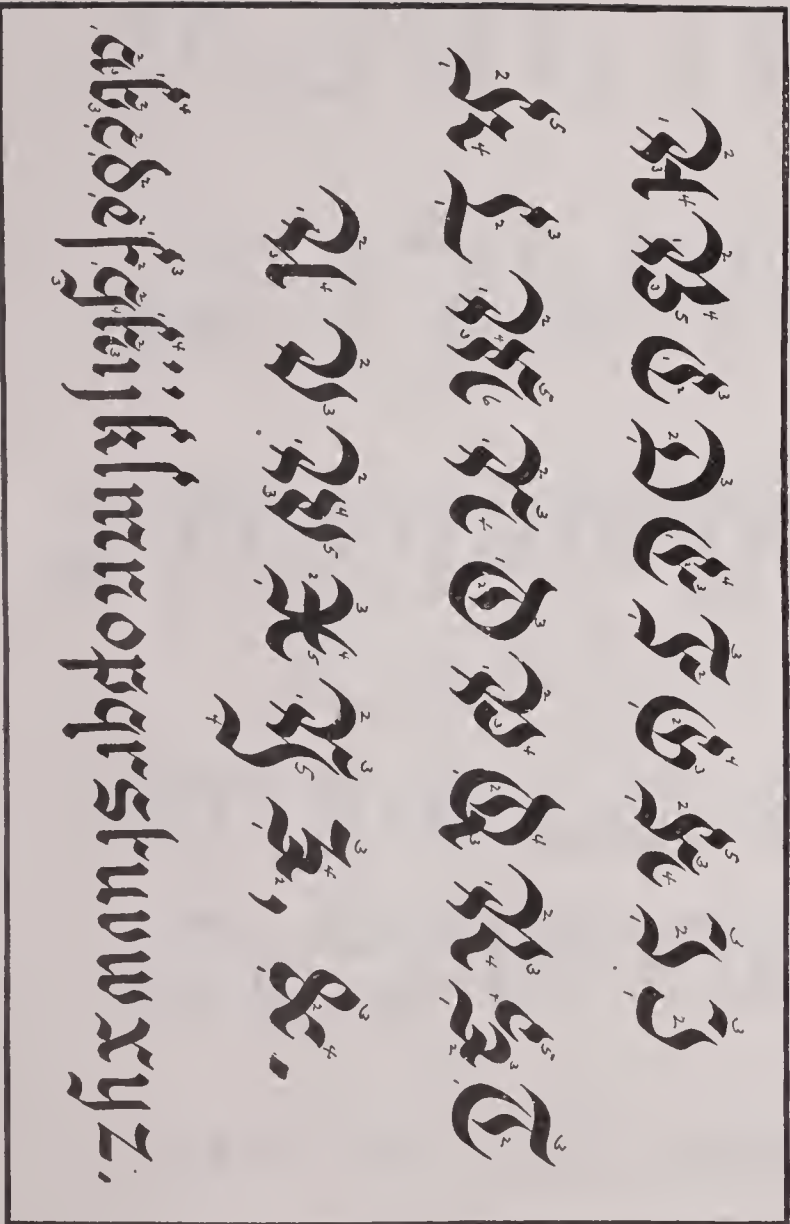 A B C D E F G H I J
K L M N O P Q R S T
U V W X Y Z, &.
a b c d e f g h i j k l m n o p q r s t u v w x y z.